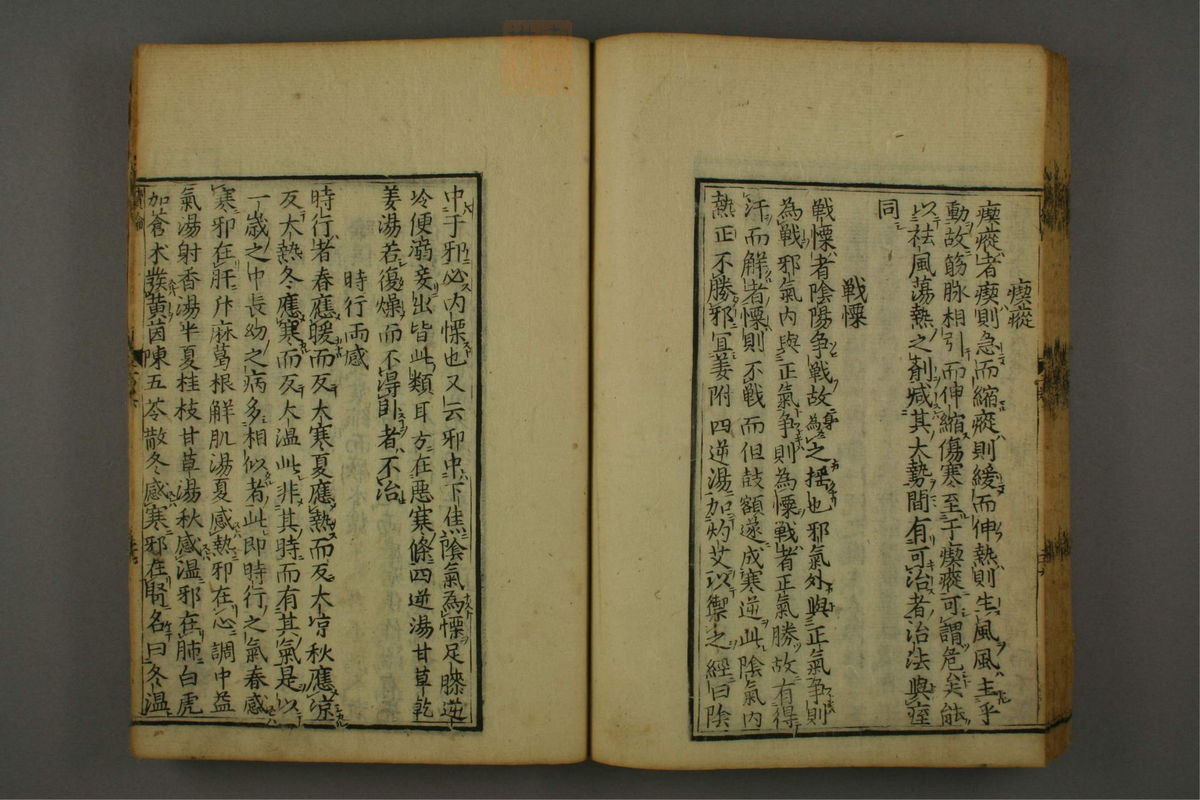 瘈瘲
瘈瘲者瘈則急而縮瘲則緩而伸熱則生風風主乎
動故筋脉相引而伸縮傷寒至于瘈瘲可謂危矣能
以祛風蕩熱之剤减其大勢間有可治者治法與痓
同
戦慄
戦慄者陰陽争戦故為之揺也邪氣外與正氣争則
為戦邪氣内與正氣争則為慄戦者正氣勝故有得
汗而觧者慄則不戦而但鼓頷遂成寒逆此陰氣内
熱正不勝邪冝姜附四逆湯加灼艾以禦之經曰陰
中于邪必内慄也又云邪中下焦陰氣為慄足膝逆
冷便溺妄出皆此類耳方在悪寒條四逆湯甘草乾
姜湯若復燥而不得卧者不治
時行両感
時行者春應暖而反大寒夏應熱而反大凉秋應凉
反大熱冬應寒而反大温此非其時而有其氣是以
一歳之中長幼之病多相似者此即時行之氣春感
寒邪在肝升麻葛根觧肌湯夏感熱邪在心調中益
氣湯射香湯半夏桂枝甘草湯秋感温邪在肺白虎
加蒼术茵陳五苓散冬感寒邪在腎名曰冬温